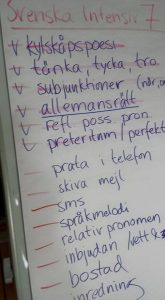 Svenska Intensiv 7
v kylskåpspoesi
v tänka, tycka, tro
v subjunktioner (när, om
v allemansrätt
v refl. poss. pron.
v preteritum / perfekt
- prata i telefon
skiva mejl
- sms
- språkmelodi
- relativ pronomen
- inbjudan /vett &
- bostad
- inredning